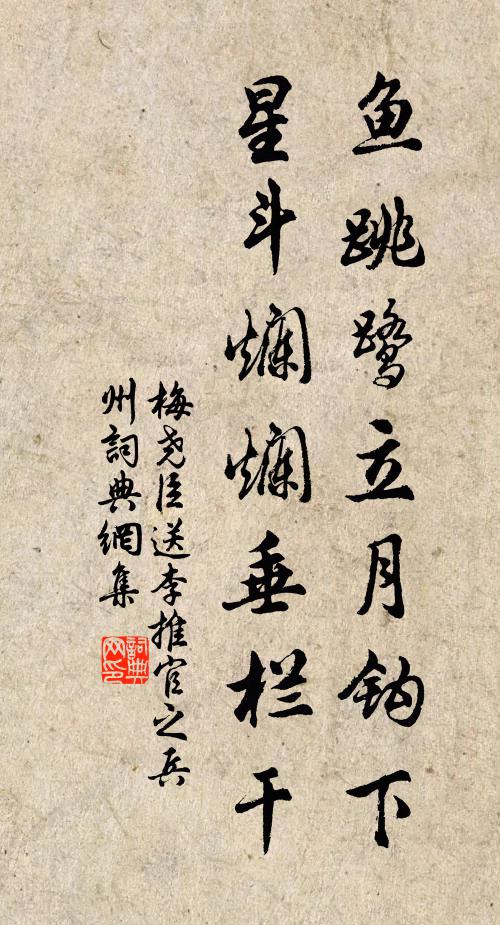 鱼跳鹭立月钩下
星斗斓斓垂栏干
梅尧臣送李推官之兵
州詞典網集
詞典
网印